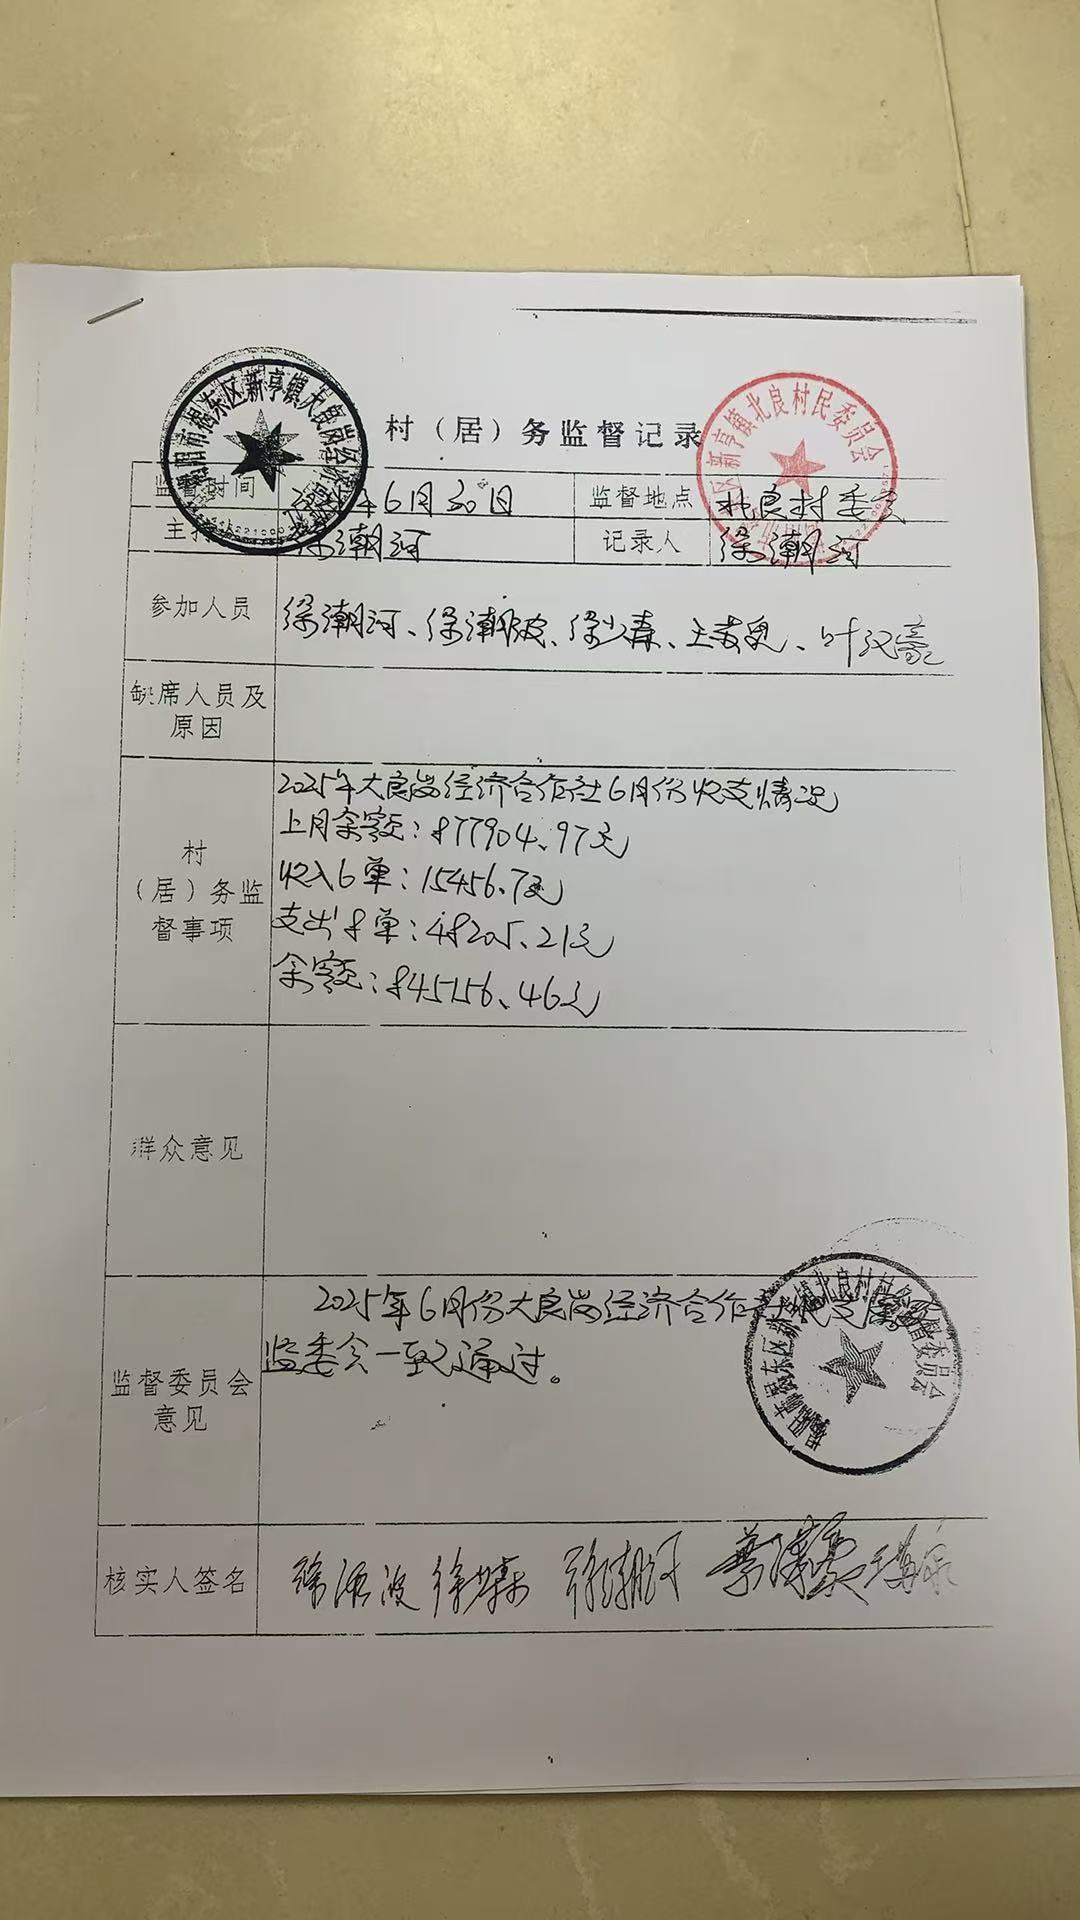 揭阳市揭东区新亨镇大良岗经济
区新亨镇北良村民委员会
村（居）务监督记录
监督时间 年6月30日 监督地点 北良村委会
主持 徐潮河 记录人 徐潮河
参加人员 徐潮河、徐潮波、徐少森、王 、叶汉豪
缺席人员及
原因
2025年大良岗经济合作社6月份收支情况
上月余额：877904.97元
村
（居）务监
督事项
收入6单：15456.7元
支出8单：48205.21元
余额：845156.46元
群众意见
2025年6月份大良岗经济合作社收支
监委会一致通过。
监督委员会
意见
揭阳市揭东区新亨镇北良村村务监督委员会
核实人签名 徐潮波 徐少森 徐潮河